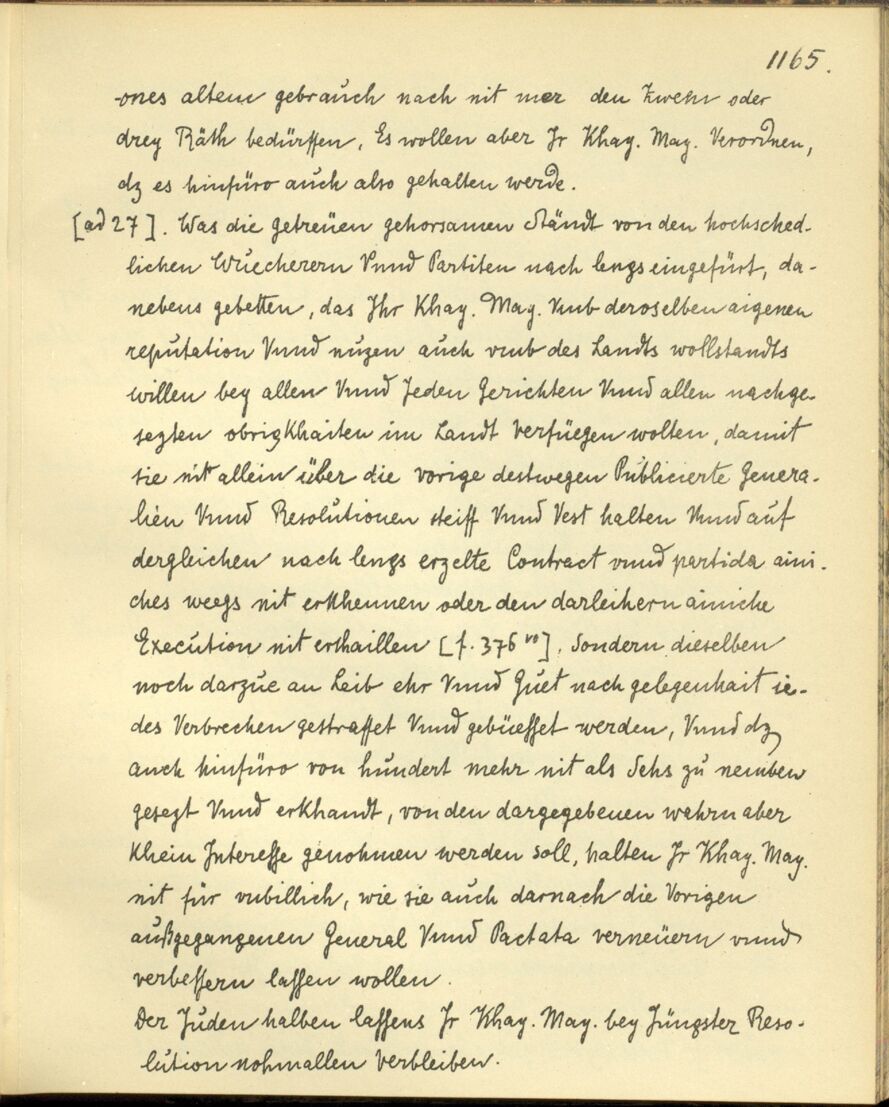 1165.
-ones altem gebrauch nach nit mer den zwen oder
drey Räth bedürffen, Es wollen aber Jr Khay. May. Verordnen,
dz es hinfüro auch also gehalten werde.
[ad 27]. Was die getreüen gehorsamen Ständt von den hochsched-
lichen Wuecherern Vnnd Partiten nach lengs eingefürt, da-
nebens gebetten, das Ihr Khay. May. Vmb deroselben aigenen
reputation Vnnd nuzen auch vmb des Landts wollstandts
willen bey allen Vnnd Jeden Gerichten Vnnd allen nachge-
sezten obrigKhaiten im Landt Verfüegen wolten, damit
sie nit allein über die vorige destwegen Publicierte Genera-
lien Vnnd Resolutionen steiff Vnnd Vest halten Vnnd auf
dergleichen nach lengs erzelte Contract vnnd partida aini-
ches weegs nit erkhennen oder den darleihern ainiche
Execution nit erthaillen [f. 376 vo]. Sondern dieselben
noch darzue an Leib ehr Vnnd Guet nach gelegenhait ie-
des Verbrechen gestraffet Vnnd gebüesset werden, Vnnd dz
auch hinfüro von hundert mehr nit als Sehs zu nemben
gesezt Vnnd erKhandt, von den dargegebenen wahrn aber
Khein Interesse genohmen werden soll, halten Jr Khay. May.
nit für vnbillich, wie sie auch darnach die Vorigen
außgegangenen General Vnnd Pactata verneüern vnnd
verbessern lassen wollen.
Der Juden halben lassens Jr Khay. May. bey Jüngster Reso-
lution nohmallen Verbleiben.